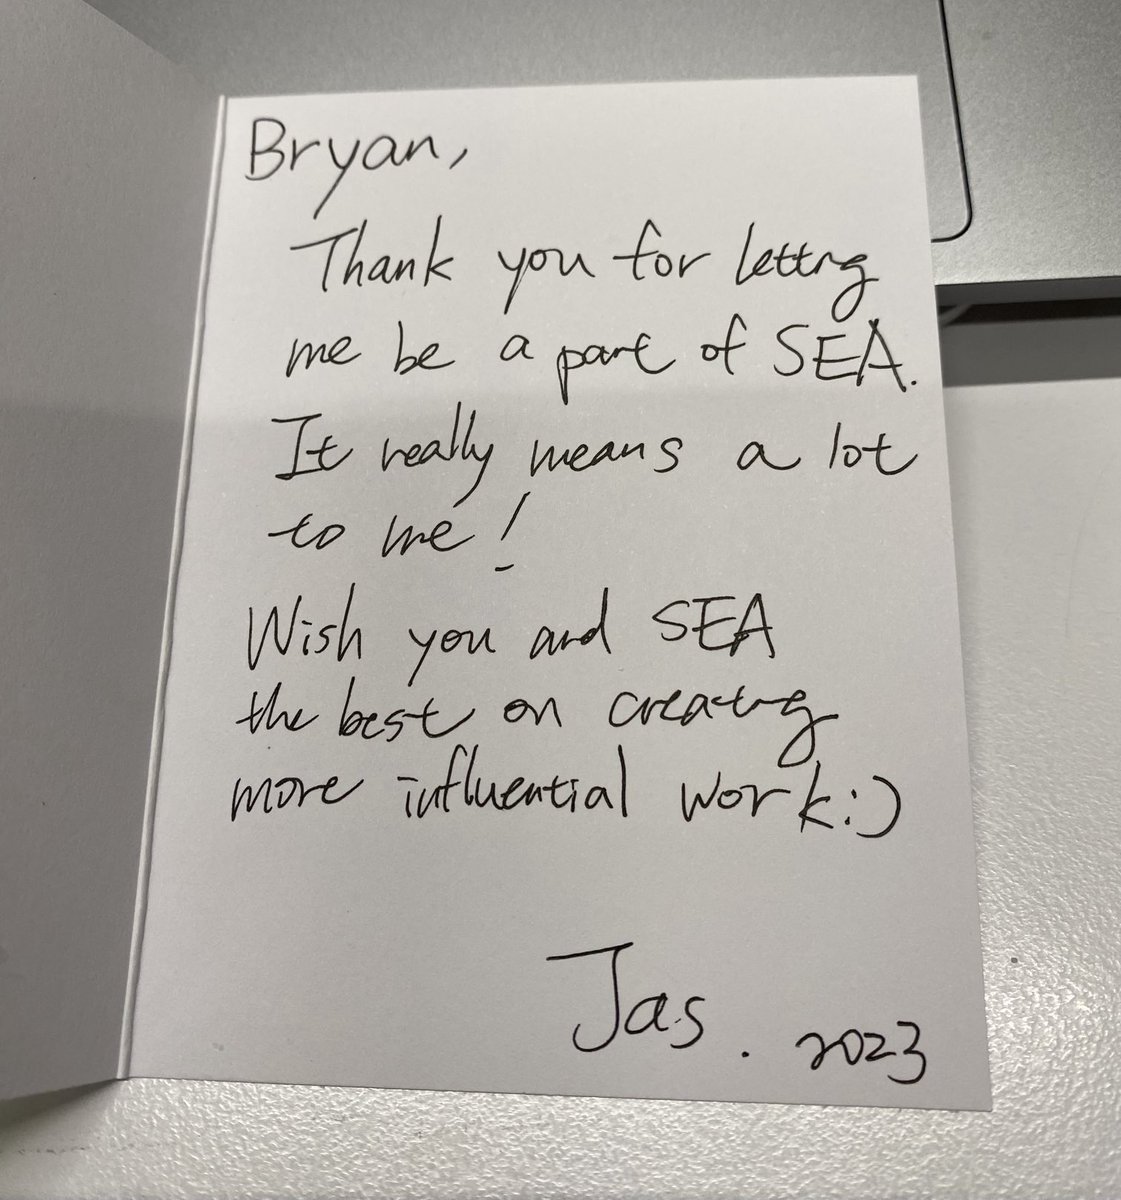 Bryan,
Thank you for letting
me be a part of SEA.
It really means a lot
to me!
Wish you and SEA
the best on creating
more influential work:)
Jas. 2023